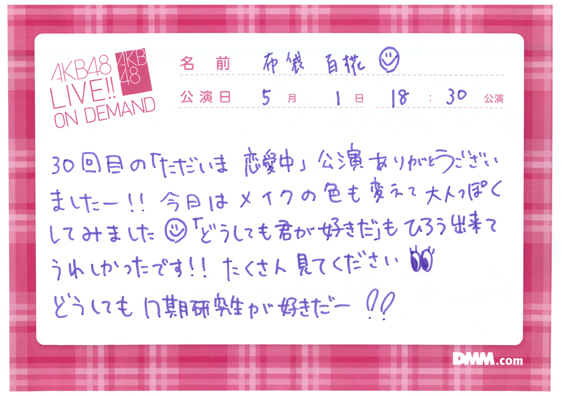 AKB48
LIVE!!
ON DEMAND
AKB
48
名前 布袋 百椛
公演日 5月 1日 18:30 公演
30回目の「ただいま 恋愛中」公演ありがとうござい
ましたー!! 今日はメイクの色も変えて大人っぽく
してみました「どうしても君が好きだ」もひろう出来て
うれしかったです!! たくさん見てください
どうしても17期研究生が好きだー!!
DMM.com